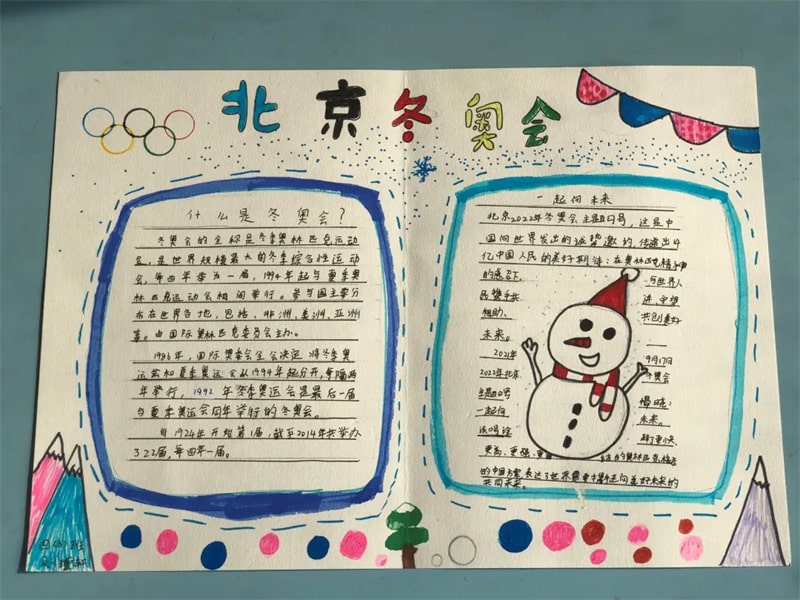 北京冬奥会
什么是冬奥会?
冬奥会的全称是冬季奥林匹克运动
会,是世界规模最大的冬季综合性运动
会,每四年举办一届,1994年起与夏季奥
林匹克运动会相间举行。参与国主要分
布在世界各地,包括,非洲、美洲、亚洲
等。由国际奥林匹克委员会主办。
1986年,国际奥委会全会决定将冬季奥
运会和夏季奥运会从1994年起分开,每隔两
年举行,1992年冬季奥运会是最后一届
与夏季奥运会同年举行的冬奥会。
自1924年开始第1届,截至2014年共举办
了22届,每四年一届。
一起向未来
北京2022年冬奥会主题口号,这是中
国向世界发出的诚挚邀约,传递出14
亿中国人民的美好期待:在奥林匹克精神
的感召下, 与世界人
民携手共 进、守望
相助、 共创美好
未来。 一
2021年 9月17日
2022年北京 冬奥会
主题口号
一起向 未来。
更快
更高、更强、更
的中国方案,表达了世界需要携手走向美好未来的
共同未来。
四 班